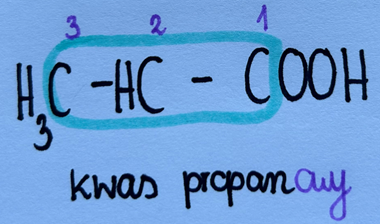 3 2 1
H₃C - HC - COOH
kwas propanowy